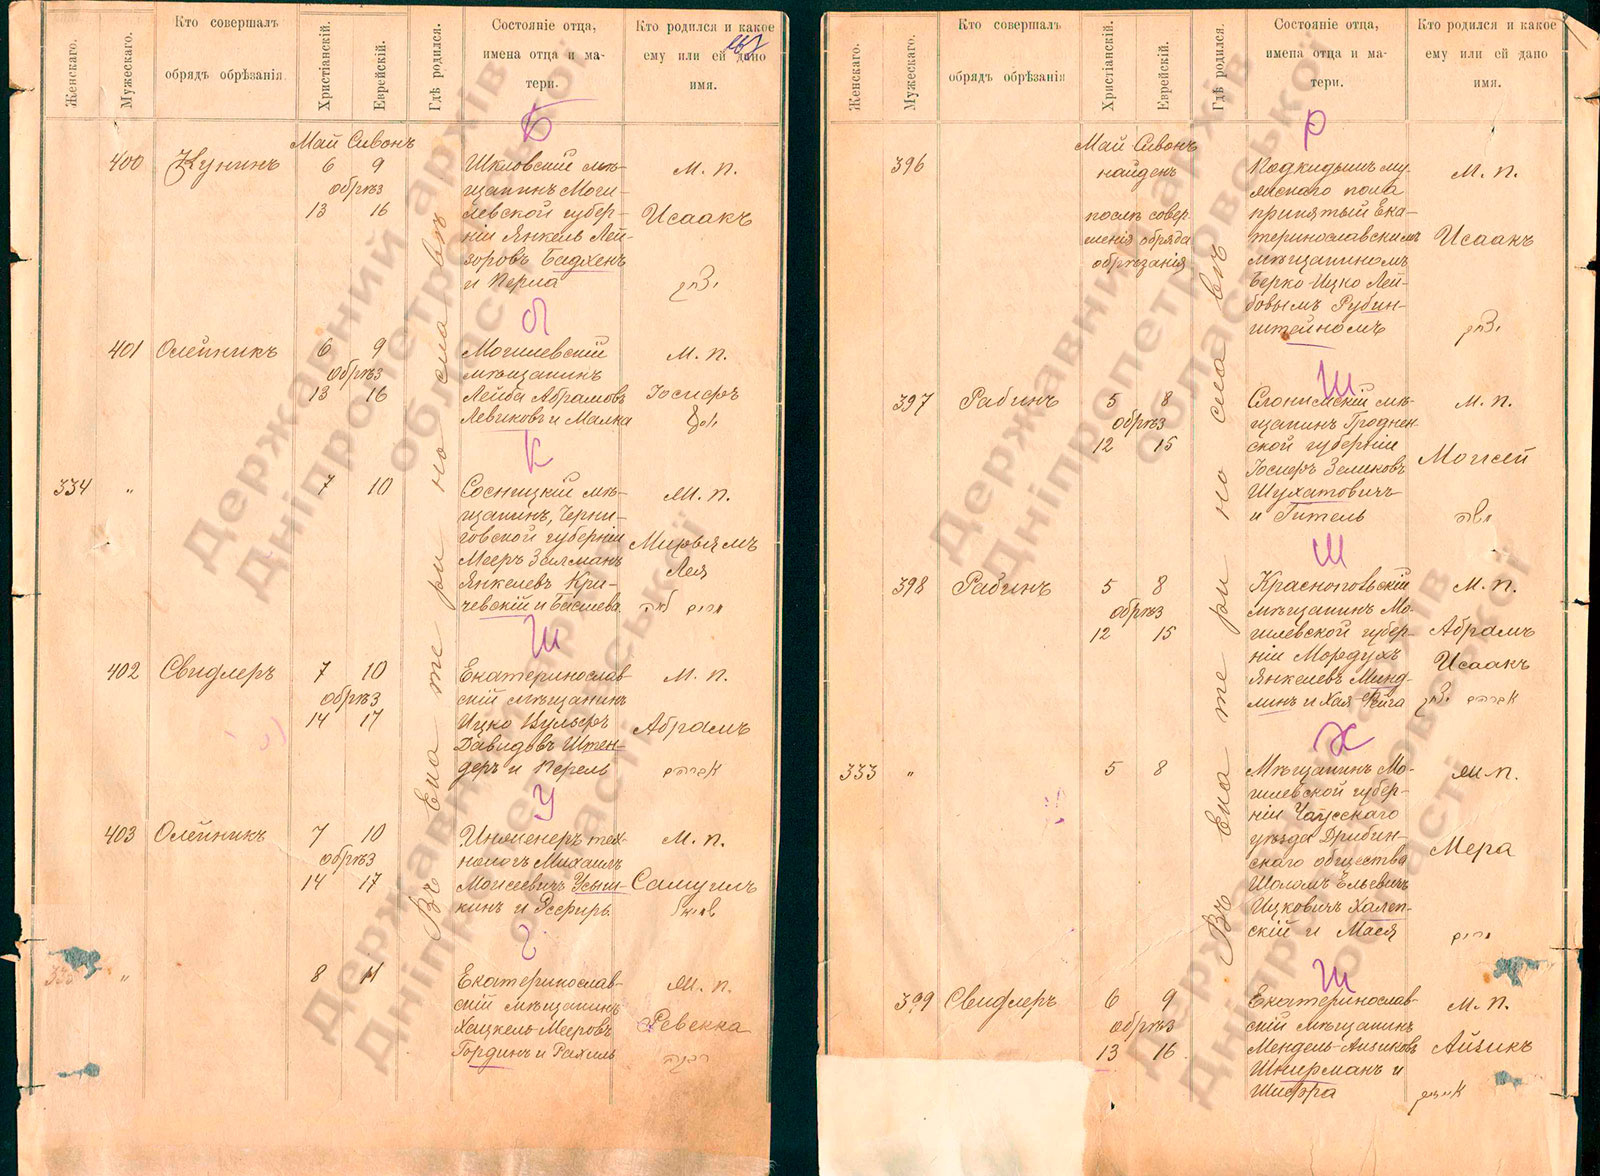 Женскаго.
Мужескаго.
Кто совершалъ
обрядъ обрѣзанія
Христіанскій.
Еврейскій.
Гдѣ родился.
Состояніе отца,
имена отца и ма-
тери.
Кто родился и какое
ему или ей дано
имя.
Державний архів
Дніпропетровської
області
Въ Екатеринославѣ
Б
Май Сивонъ
400 Кунинъ 6 9
обрѣз
13 16
Шкловскій мѣ-
щанинъ Моги-
левской губер-
ніи Янкель Лей-
зоровъ Бадхенъ
и Перла
М. п.
Исаакъ
יצחק
Л
401 Олейникъ 6 9
обрѣз
13 16
Могилевскій
мѣщанинъ
Лейба Абрамовъ
Левиковъ и Малка
М. п.
Іосифъ
יוסף
К
334 " 7 10
Сосницкій мѣ-
щанинъ, Черни-
говской губерніи
Мееръ Залманъ
Янкелевъ Кри-
чевскій и Басшева
М. п.
Мирьямъ
Лея
מרים לאה
Ш
402 Свифлеръ 7 10
обрѣз
14 17
Екатеринослав-
скій мѣщанинъ
Ицко Вульфъ
Давидовъ Штен-
деръ и Перель
М. п.
Абрамъ
אברהם
У
403 Олейникъ 7 10
обрѣз
14 17
Инженеръ тех-
нологъ Михаилъ
Моисеевичъ Усыш-
кинъ и Эсфирь
М. п.
Самуилъ
שמואל
Г
335 " 8 11
Екатеринослав-
скій мѣщанинъ
Хацкель Мееровъ
Гординъ и Рахиль
М. п.
Ревекка
רבקה
Женскаго.
Мужескаго.
Кто совершалъ
обрядъ обрѣзанія
Христіанскій.
Еврейскій.
Гдѣ родился.
Состояніе отца,
имена отца и ма-
тери.
Кто родился и какое
ему или ей дано
имя.
Державний архів
Дніпропетровської
області
Въ Екатеринославѣ
Р
Май Сивонъ
396 найденъ
послѣ совер
шенія обряда
обрѣзанія
Подкидышъ му-
жскаго пола
принятый Ека-
теринославскимъ
мѣщаниномъ
Берко-Ицко Лей-
бовымъ Рубин-
штейномъ
М. п.
Исаакъ
יצחק
Ш
397 Рабинъ 5 8
обрѣз
12 15
Слонимскій мѣ-
щанинъ Гроднен
ской губерніи
Іосифъ Зеликовъ
Шухатовичъ
и Гитель
М. п.
Моисей
משה
М
398 Рабинъ 5 8
обрѣз
12 15
Краснопольскій
мѣщанинъ Мо-
гилевской губер-
ніи Мордухъ
Янкелевъ Минд-
линъ и Хая-Фейга
М. п.
Абрамъ
Исаакъ
אברהם יצחק
Х
333 " 5 8
Мѣщанинъ Мо-
гилевской губер-
ніи Чаусскаго
уѣзда Дрибин-
скаго общества
Шоломъ Ельевичъ
Ицковичъ Халеп-
скій и Мася
М. п.
Мера
Ш
399 Свифлеръ 6 9
обрѣз
13 16
Екатеринослав-
скій мѣщанинъ
Мендель-Айзиковъ
Шнирманъ и
Шифра
М. п.
Айзикъ
אייזיק